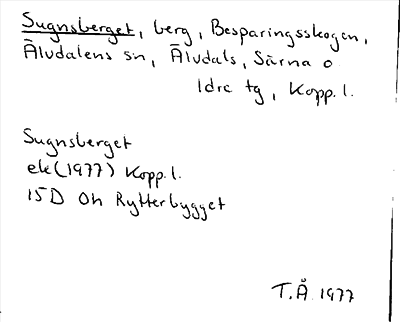 Sugnsberget, berg, Besparingsskogen,
Älvdalens sn, Älvdals, Särna o
Idre tg, Kopp. l.
Sugnsberget
ek (1977) Kopp. l.
15D 0h Rytterbygget
T.Å. 1977